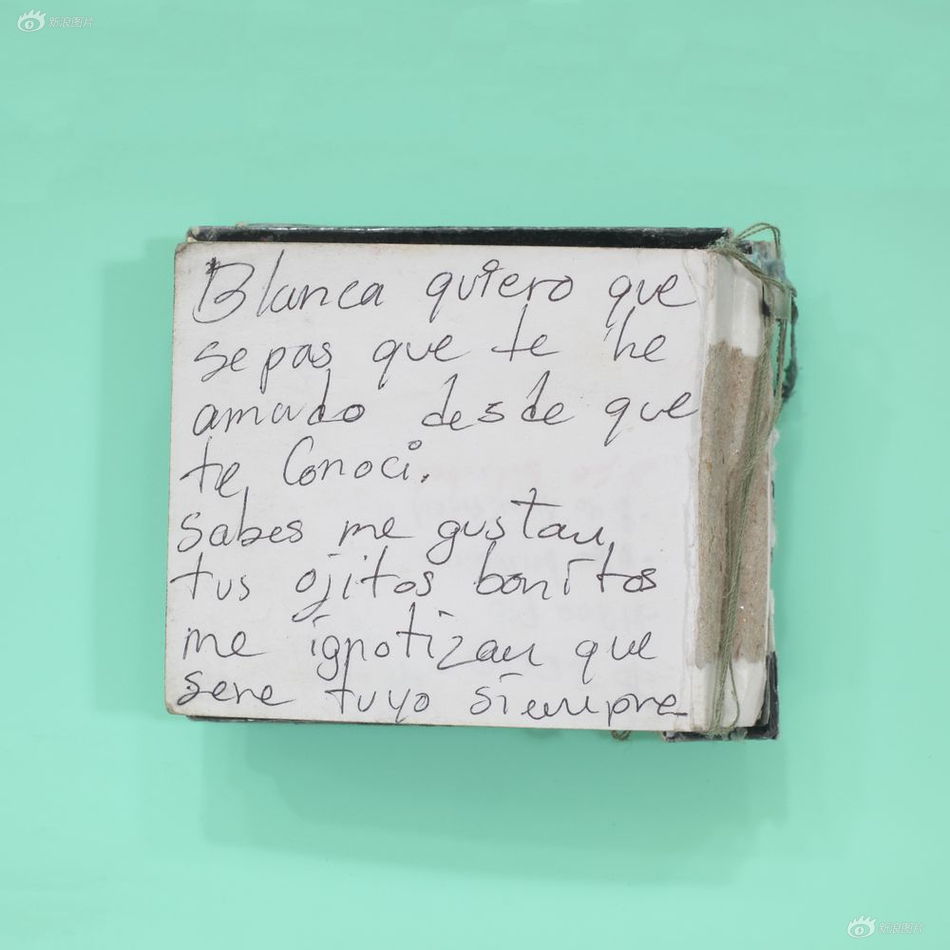 新浪图片
Blanca quiero que
sepas que te he
amado desde que
te Conoci.
Sabes me gustan
tus ojitos bonitos
me ignotizan que
sere tuyo siempre
新浪图片